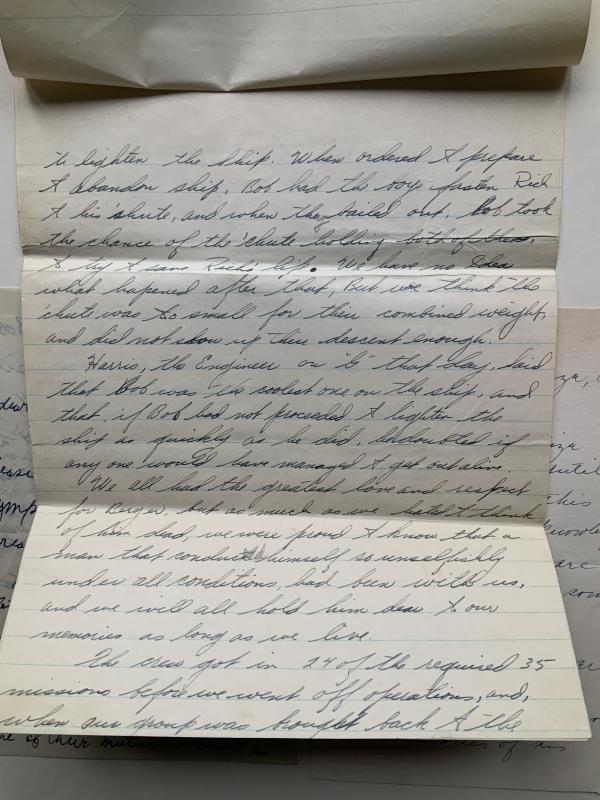 to lighten the ship. When ordered to prepare
to abandon ship, Bob had the boys fasten Rich
to his 'chute, and when they bailed out, Bob took
the chance of the 'chute holding both of them,
to try to save Rich's life. We have no Idea
what hapened after that, But we think the
chute was to small for their combined weight,
and did not slow up their descent enough.
Harris, the Engineer on "G" that day, said
that Bob was the coolest one on the ship, and
that, if Bob had not proceeded to lighten the
ship as quickly as he did, he doubted if
any one would have managed to get out alive.
We all had the greatest love and respect
for Berger, but as much as we hated to think
of him dead, we were proud to know that a
man that conducts himself so unselfishly
under all conditions, had been with us,
and we will all hold him dear to our
memories as long as we live.
The crew got in 24 of the required 35
missions before we went off operations, and,
when our group was brought back to the
of their mutual